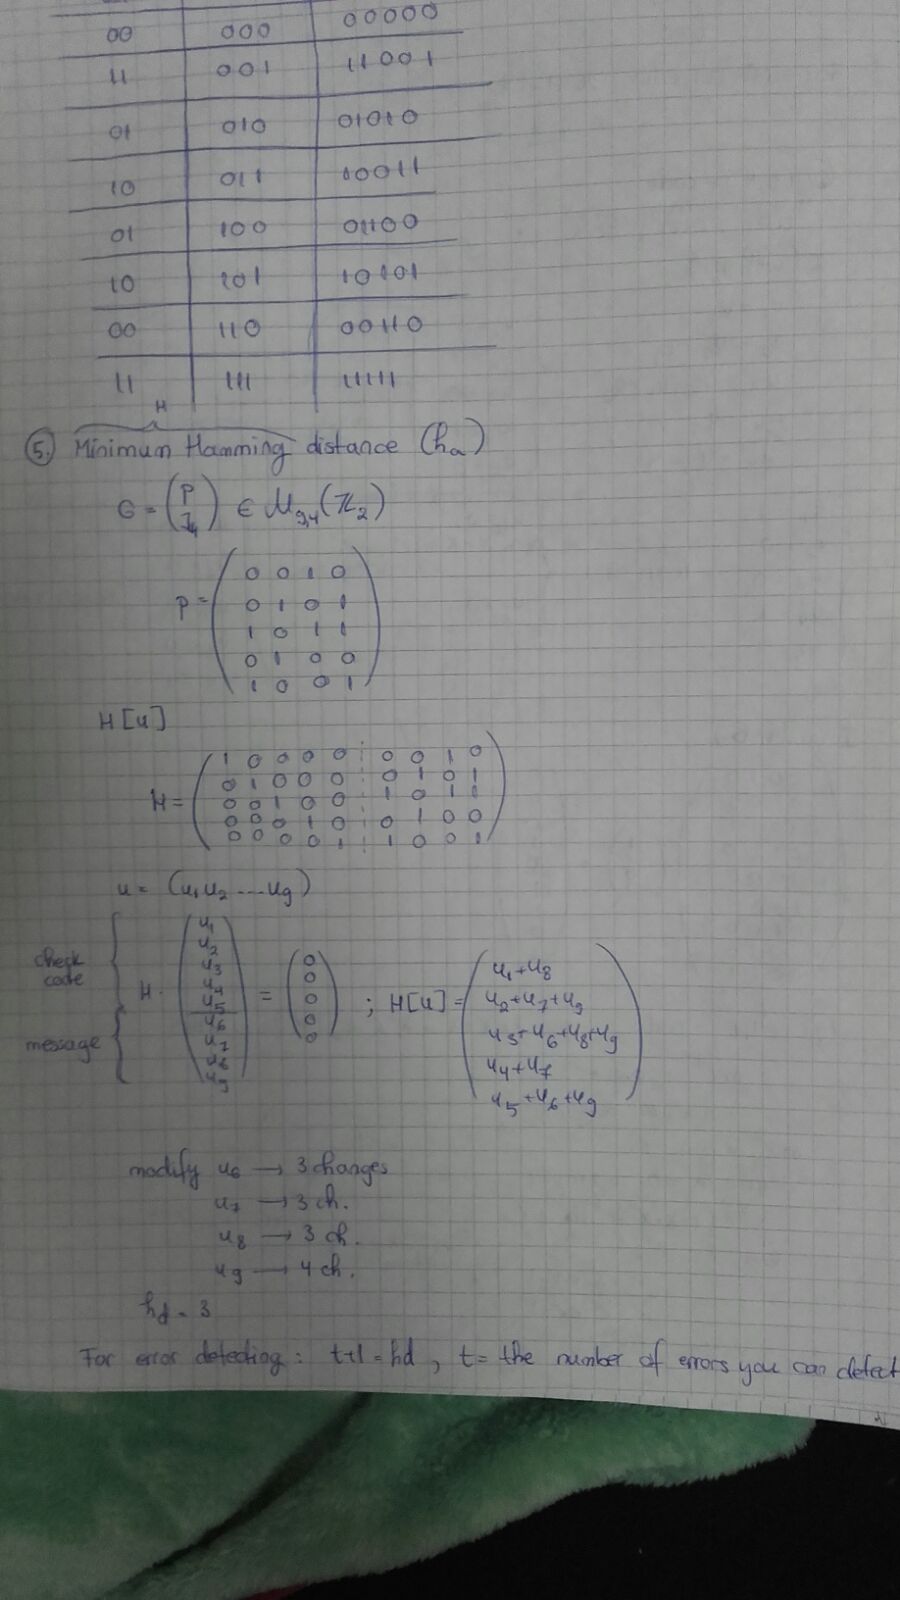 00 000 00000
11 001 11001
01 010 01010
10 011 10011
01 100 01100
10 101 10101
00 110 00110
11 111 11111
H
5. Minimum Hamming distance (hd)
G = (P I4) ∈ M9,4(Z2)
P = (
0 0 1 0
0 1 0 1
1 0 1 1
0 1 0 0
1 0 0 1
)
H[u]
H = (
1 0 0 0 0 0 0 1 0
0 1 0 0 0 0 1 0 1
0 0 1 0 0 1 0 1 1
0 0 0 1 0 0 1 0 0
0 0 0 0 1 1 0 0 1
)
u = (u1 u2 ... u9)
check code
message
H · (
u1
u2
u3
u4
u5
u6
u7
u8
u9
) = (
0
0
0
0
0
) ; H[u] = (
u1+u8
u2+u7+u9
u3+u6+u8+u9
u4+u7
u5+u6+u9
)
modify u6 → 3 changes
u7 → 3 ch.
u8 → 3 ch.
u9 → 4 ch.
hd = 3
For error detecting: t+1 = hd, t = the number of errors you can detect